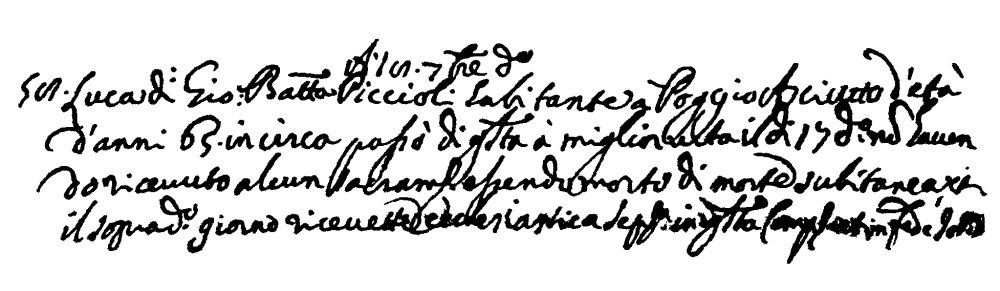 A di 15. 7bre do
Luca di Gio: Batta Piccioli habitante a Poggio Asciutto d'età
d'anni 65. in circa passò di qsta à miglior uita il di 17 do. nō hauen
do riceuuto alcun sacram. essendo morto di morte subitanea
il sopradº giorno riceuette ecclesiastica sepra. in qsta in fede